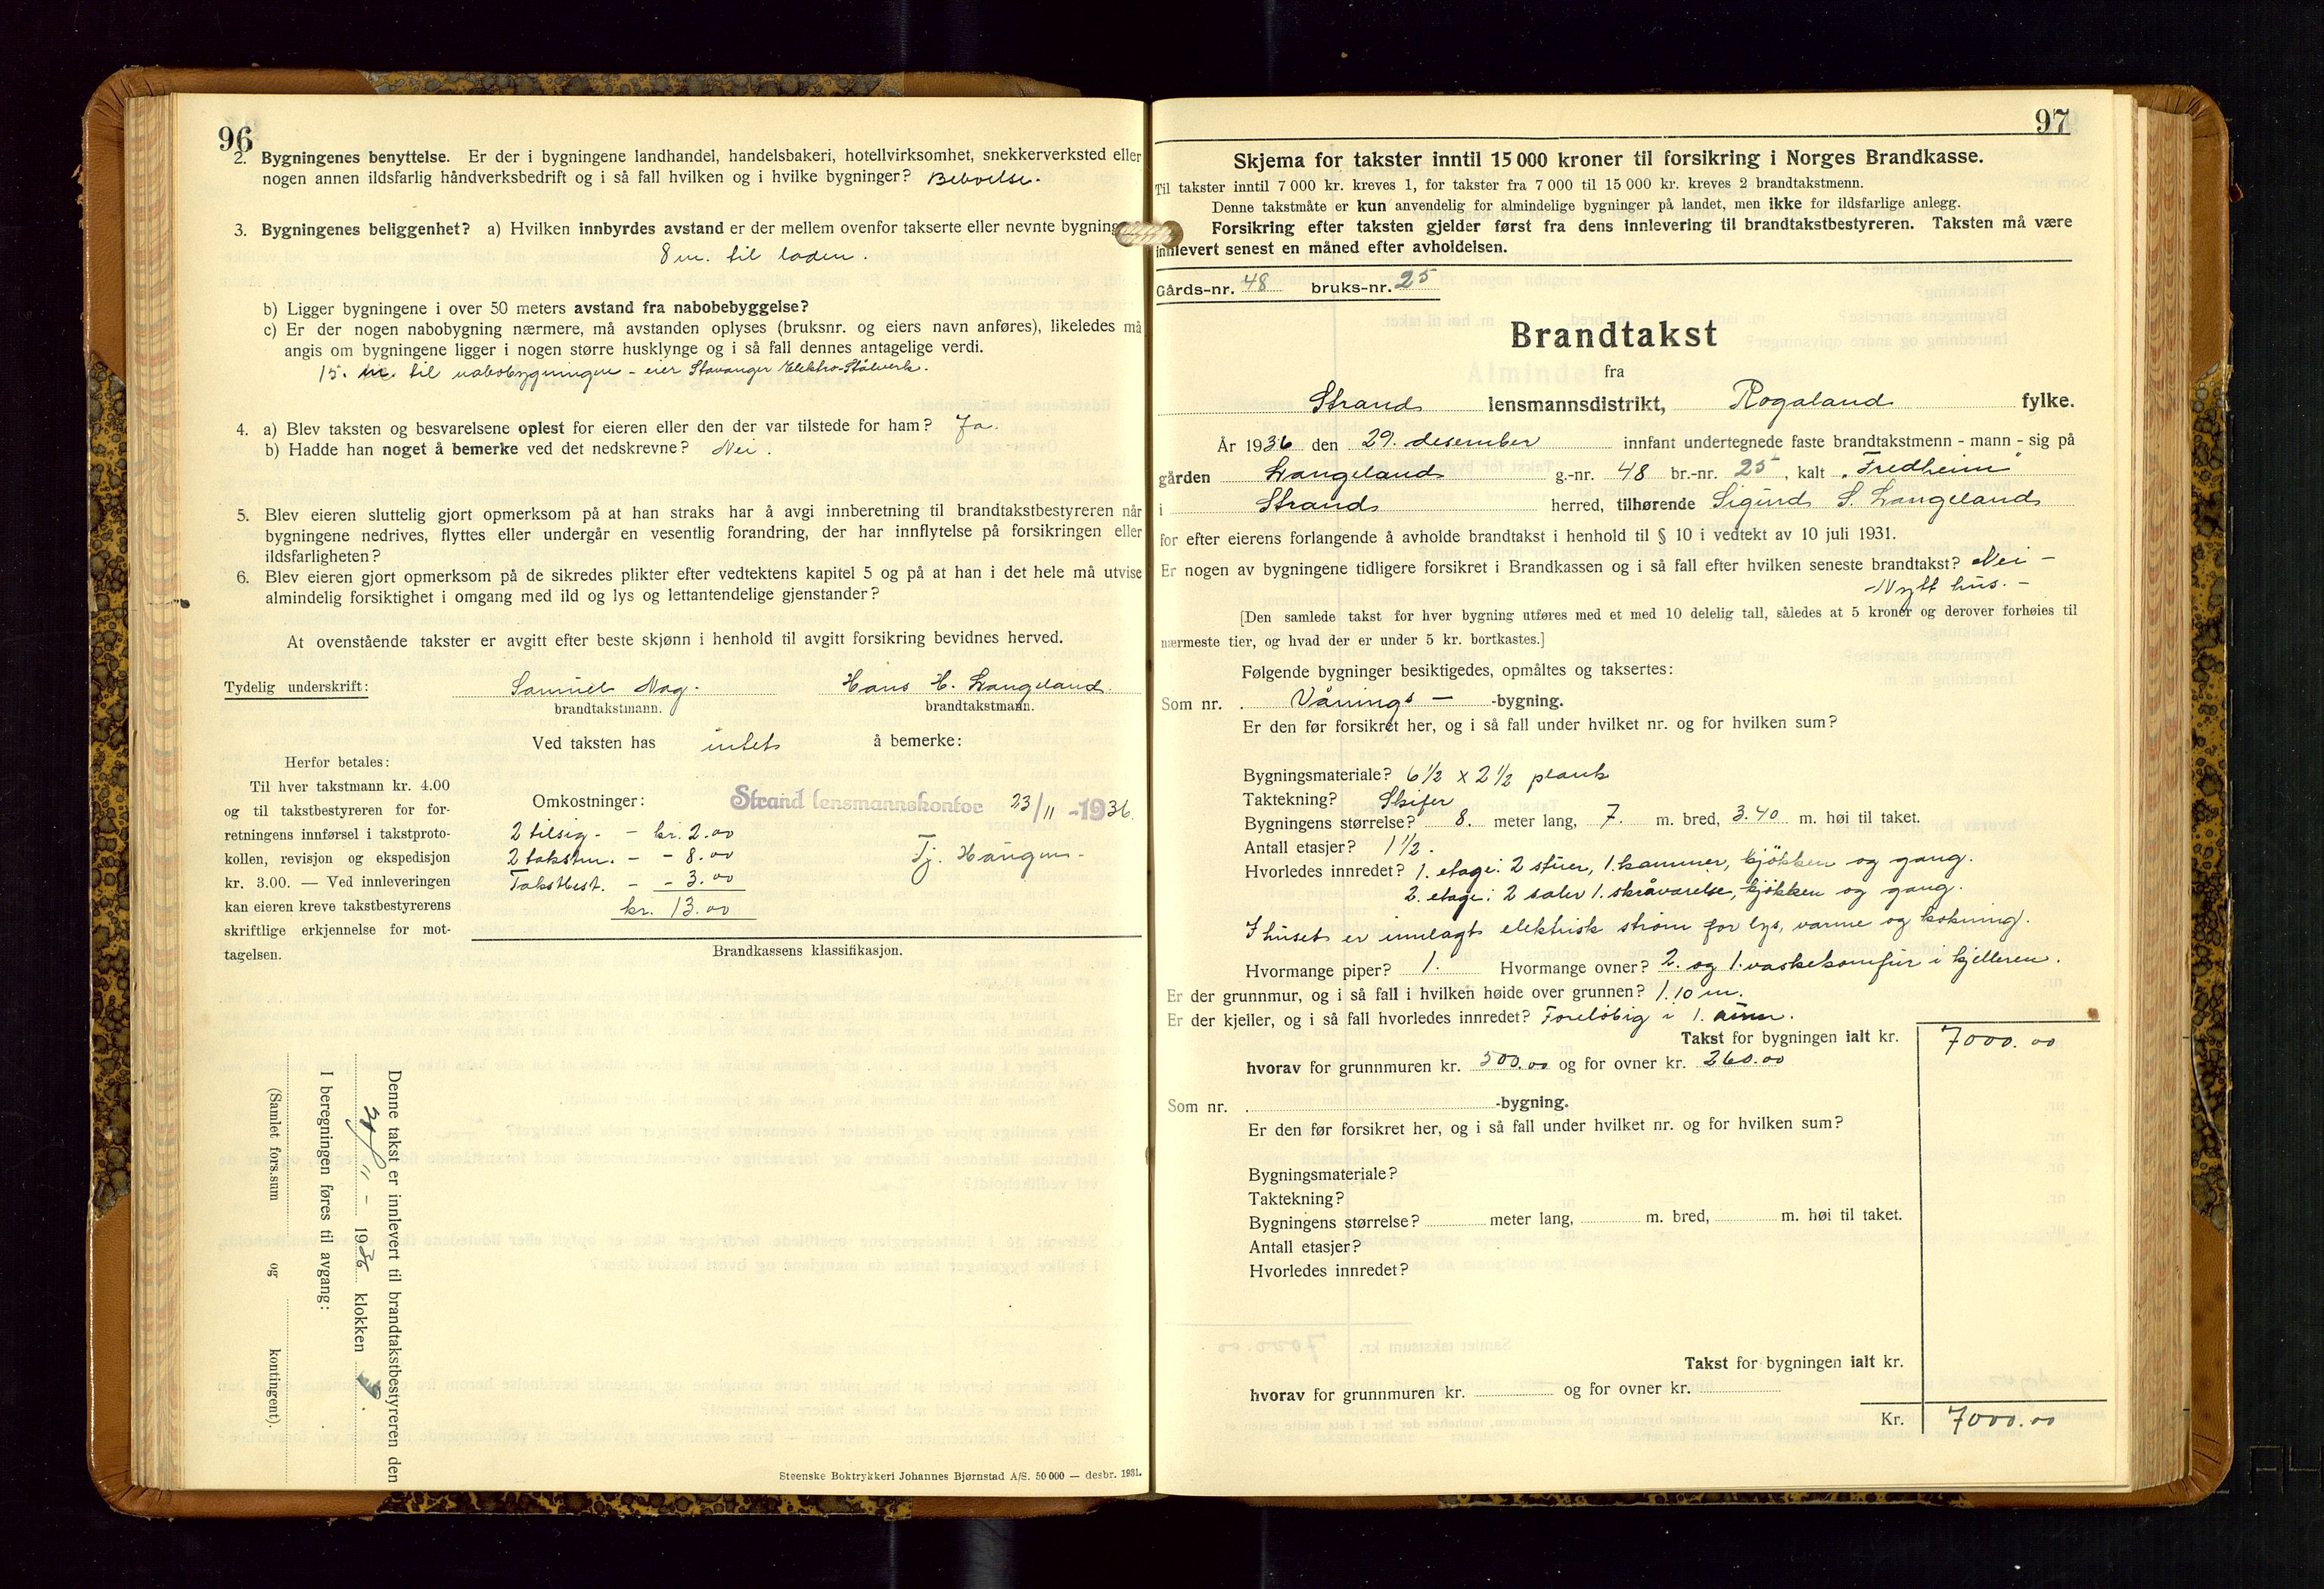 96
2. Bygningenes benyttelse. Er der i bygningene landhandel, handelsbakeri, hotellvirksomhet, snekkerverksted eller
nogen annen ildsfarlig håndverksbedrift og i så fall hvilken og i hvilke bygninger? Beboelse.
3. Bygningenes beliggenhet? a) Hvilken innbyrdes avstand er der mellem ovenfor takserte eller nevnte bygning
8 m. til laden.
b) Ligger bygningene i over 50 meters avstand fra nabobebyggelse?
c) Er der nogen nabobygning nærmere, må avstanden oplyses (bruksnr. og eiers navn anføres), likeledes må
angis om bygningene ligger i nogen større husklynge og i så fall dennes antagelige verdi.
15. m. til nabobygningen - eier Stavanger Elektro-Stålverk.
4. a) Blev taksten og besvarelsene oplest for eieren eller den der var tilstede for ham? Ja.
b) Hadde han noget å bemerke ved det nedskrevne? Nei.
5. Blev eieren sluttelig gjort opmerksom på at han straks har å avgi innberetning til brandtakstbestyreren når
bygningene nedrives, flyttes eller undergår en vesentlig forandring, der har innflytelse på forsikringen eller
ildsfarligheten?
6. Blev eieren gjort opmerksom på de sikredes plikter efter vedtektens kapitel 5 og på at han i det hele må utvise
almindelig forsiktighet i omgang med ild og lys og lettantendelige gjenstander?
At ovenstående takster er avgitt efter beste skjønn i henhold til avgitt forsikring bevidnes herved.
Tydelig underskrift: Samuel Nag. Hans H. Langeland.
brandtakstmann. brandtakstmann.
Ved taksten has intet å bemerke:
Herfor betales:
Til hver takstmann kr. 4.00
og til takstbestyreren for for-
retningens innførsel i takstproto-
kollen, revisjon og ekspedisjon
kr. 3.00. — Ved innleveringen
kan eieren kreve takstbestyrerens
skriftlige erkjennelse for mot-
tagelsen.
Omkostninger:
2 tilsig. - - kr. 2.00
2 takstm. - - 8.00
Takstbest. - - 3.00
kr. 13.00
Strand lensmannskontor 23/11 -1936.
Brandkassens klassifikasjon.
Denne takst er innlevert til brandtakstbestyreren den
/11 - 1936 klokken
I beregningen føres til avgang:
(Samlet fors.sum og kontingent).
Steenske Boktrykkeri Johannes Bjørnstad A/S. 50 000 — desbr. 1931.
97
Skjema for takster inntil 15 000 kroner til forsikring i Norges Brandkasse.
Til takster inntil 7 000 kr. kreves 1, for takster fra 7 000 til 15 000 kr. kreves 2 brandtakstmenn.
Denne takstmåte er kun anvendelig for almindelige bygninger på landet, men ikke for ildsfarlige anlegg.
Forsikring efter taksten gjelder først fra dens innlevering til brandtakstbestyreren. Taksten må være
innlevert senest en måned efter avholdelsen.
Gårds-nr. 48 bruks-nr. 25
Brandtakst
fra
Strand lensmannsdistrikt, Rogaland fylke.
År 1936 den 29. desember innfant undertegnede faste brandtakstmenn - mann - sig på
gården Langeland g.-nr. 48 br.-nr. 25, kalt „Fredheim"
i Strand herred, tilhørende Sigurd S. Langeland
for efter eierens forlangende å avholde brandtakst i henhold til § 10 i vedtekt av 10 juli 1931.
Er nogen av bygningene tidligere forsikret i Brandkassen og i så fall efter hvilken seneste brandtakst? Nei -
- Nytt hus. -
[Den samlede takst for hver bygning utføres med et med 10 delelig tall, således at 5 kroner og derover forhøies til
nærmeste tier, og hvad der er under 5 kr. bortkastes.]
Følgende bygninger besiktigedes, opmåltes og taksertes:
Som nr. Vånings — -bygning.
Er den før forsikret her, og i så fall under hvilket nr. og for hvilken sum?
Bygningsmateriale? 6 1/2 x 2 1/2 plank
Taktekning? Skifer
Bygningens størrelse? 8. meter lang, 7. m. bred, 3.40 m. høi til taket.
Antall etasjer? 1 1/2.
Hvorledes innredet? 1. etage: 2 stuer, 1. kammer, kjøkken og gang.
2. etage: 2 saler 1. skråværelse, kjøkken og gang.
I huset er innlagt elektrisk strøm for lys, varme og kokning.
Hvormange piper? 1. Hvormange ovner? 2. og 1. vaskekomfur i kjelleren.
Er der grunnmur, og i så fall i hvilken høide over grunnen? 1.10 m.
Er der kjeller, og i så fall hvorledes innredet? Foreløbig i 1.
Takst for bygningen ialt kr. 7000.00
hvorav for grunnmuren kr. 500.00 og for ovner kr. 260.00
Som nr. -bygning.
Er den før forsikret her, og i så fall under hvilket nr. og for hvilken sum?
Bygningsmateriale?
Taktekning?
Bygningens størrelse? meter lang, m. bred, m. høi til taket.
Antall etasjer?
Hvorledes innredet?
Takst for bygningen ialt kr.
hvorav for grunnmuren kr. og for ovner kr.
Kr. 7000.00